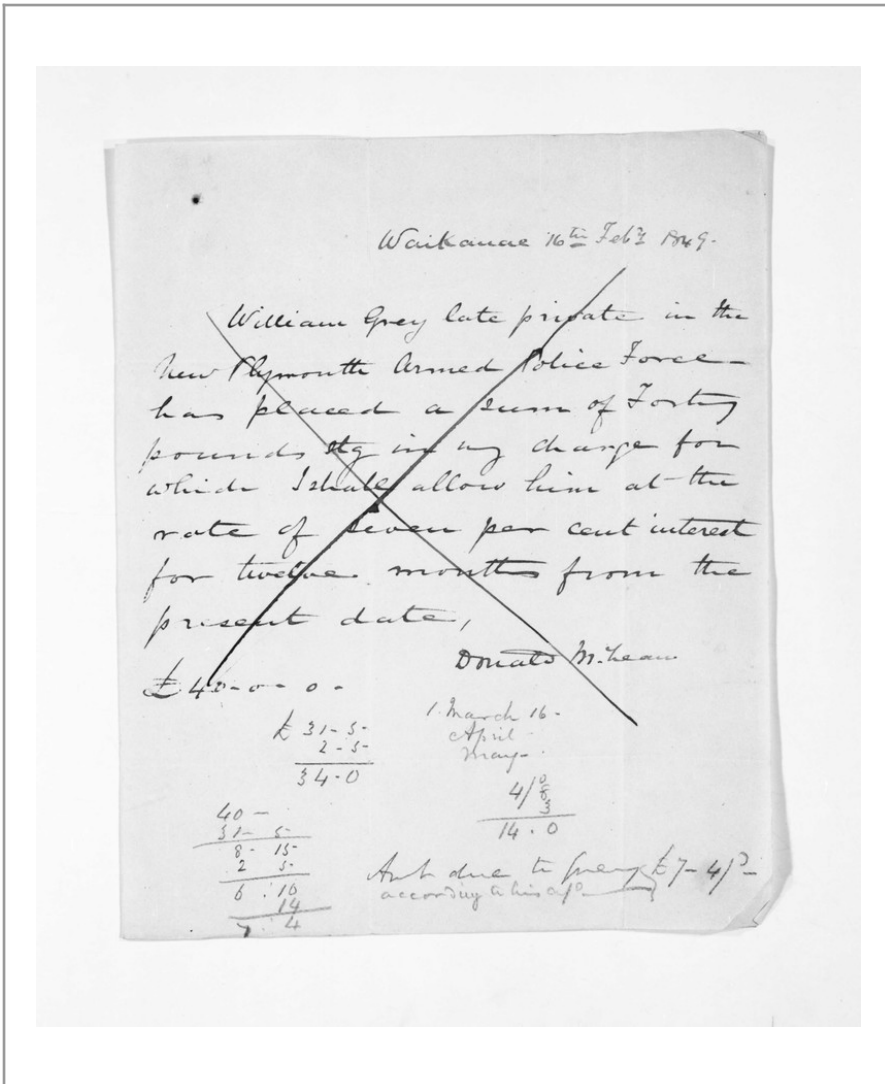 Waikanae 16th Feby 1849.
William Grey late private in the
New Plymouth Armed Police Force -
has placed a sum of Forty
pounds stg in my charge for
which I shall allow him at the
rate of seven per cent interest
for twelve months from the
present date,
Donald McLean
£ 40 - 0 - 0 -
£ 31 - 5 -
2 - 5 -
34 - 0
1. March 16 -
April -
May -
4/8
3
14 . 0
40 -
31 - 5 -
8 - 15 -
2 5 -
6 . 10
14
7 . 4
Amt due to Grey £7 - 4/
according to his a/c